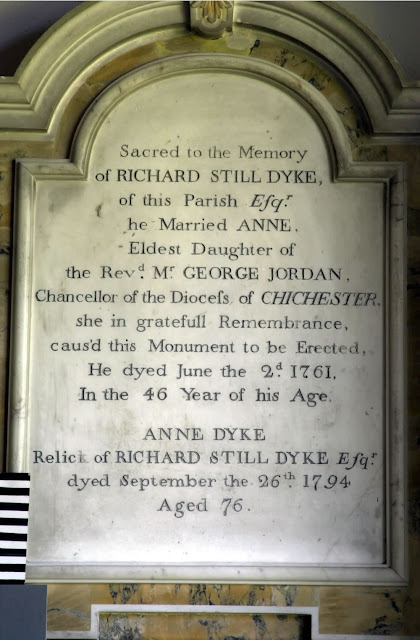 Sacred to the Memory
of RICHARD STILL DYKE,
of this Parish Eſqr.
he Married ANNE,
Eldest Daughter of
the Revd. Mr. GEORGE JORDAN,
Chancellor of the Dioceſs of CHICHESTER,
she in gratefull Remembrance,
caus'd this Monument to be Erected,
He dyed June the 2d. 1761,
In the 46 Year of his Age.
ANNE DYKE
Relick of RICHARD STILL DYKE Eſqr.
dyed September the 26th. 1794
Aged 76.